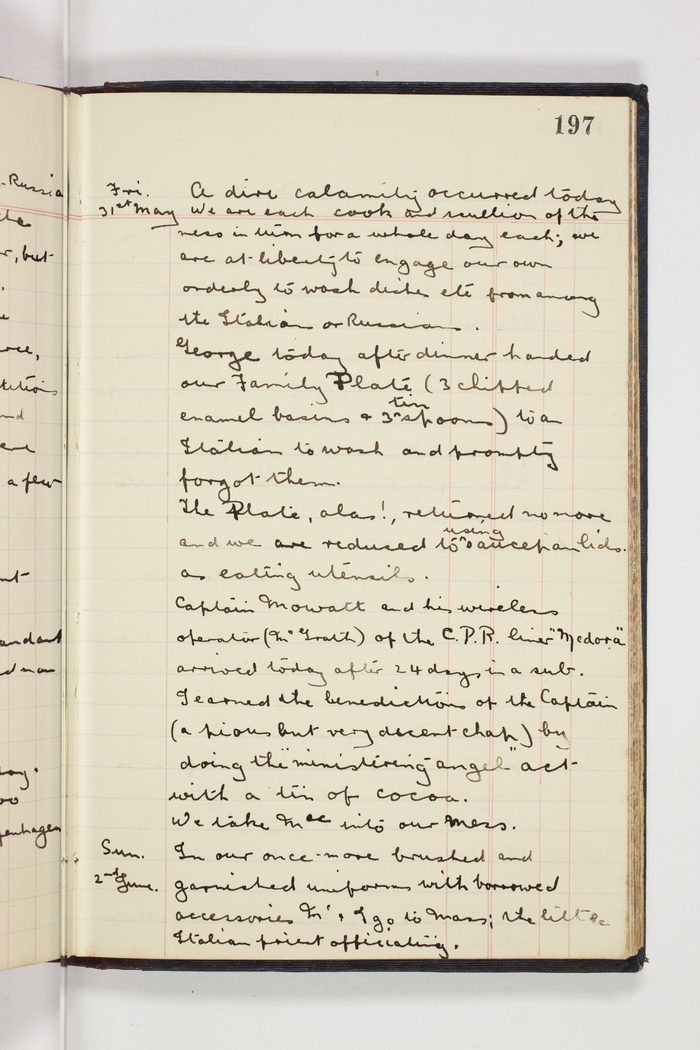 197
Fri. A dire calamity occurred today
31st May We are each cook and scullion of the
mess in turn for a whole day each; we
are at liberty to engage our own
orderly to wash dishes etc from among
the Italians or Russians.
George today after dinner handed
our Family Plate (3 chipped
enamel basins & 3 tin spoons) to an
Italian to wash and promptly
forgot them.
The Plate, alas!, returned no more
and we are reduced to using saucepan lids.
as eating utensils.
Captain Mowatt and his wireless
operator (McGrath) of the C.P.R. liner "Medora"
arrived today after 24 days in a sub.
I earned the benedictions of the Captain
(a pious but very decent chap) by
doing the "ministering angel" act
with a tin of cocoa.
We take Mcc into our mess.
Sun. In our once-more brushed and
2nd June. garnished uniforms with borrowed
accessories Mc & I go to Mass; the little
Italian priest officiating.
- Russia
r, but
a few